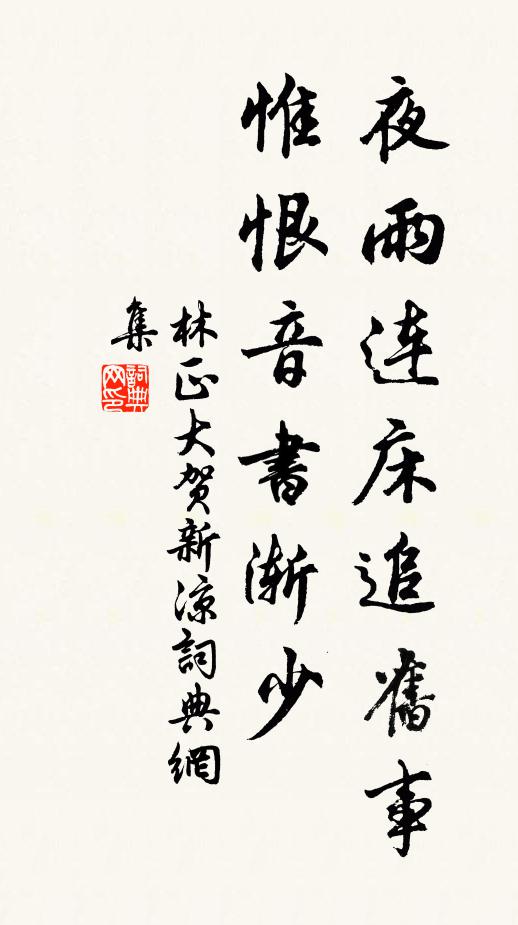 夜雨连床追舊事
惟恨音書渐少
林正大贺新凉詞典網
集
詞典
网印